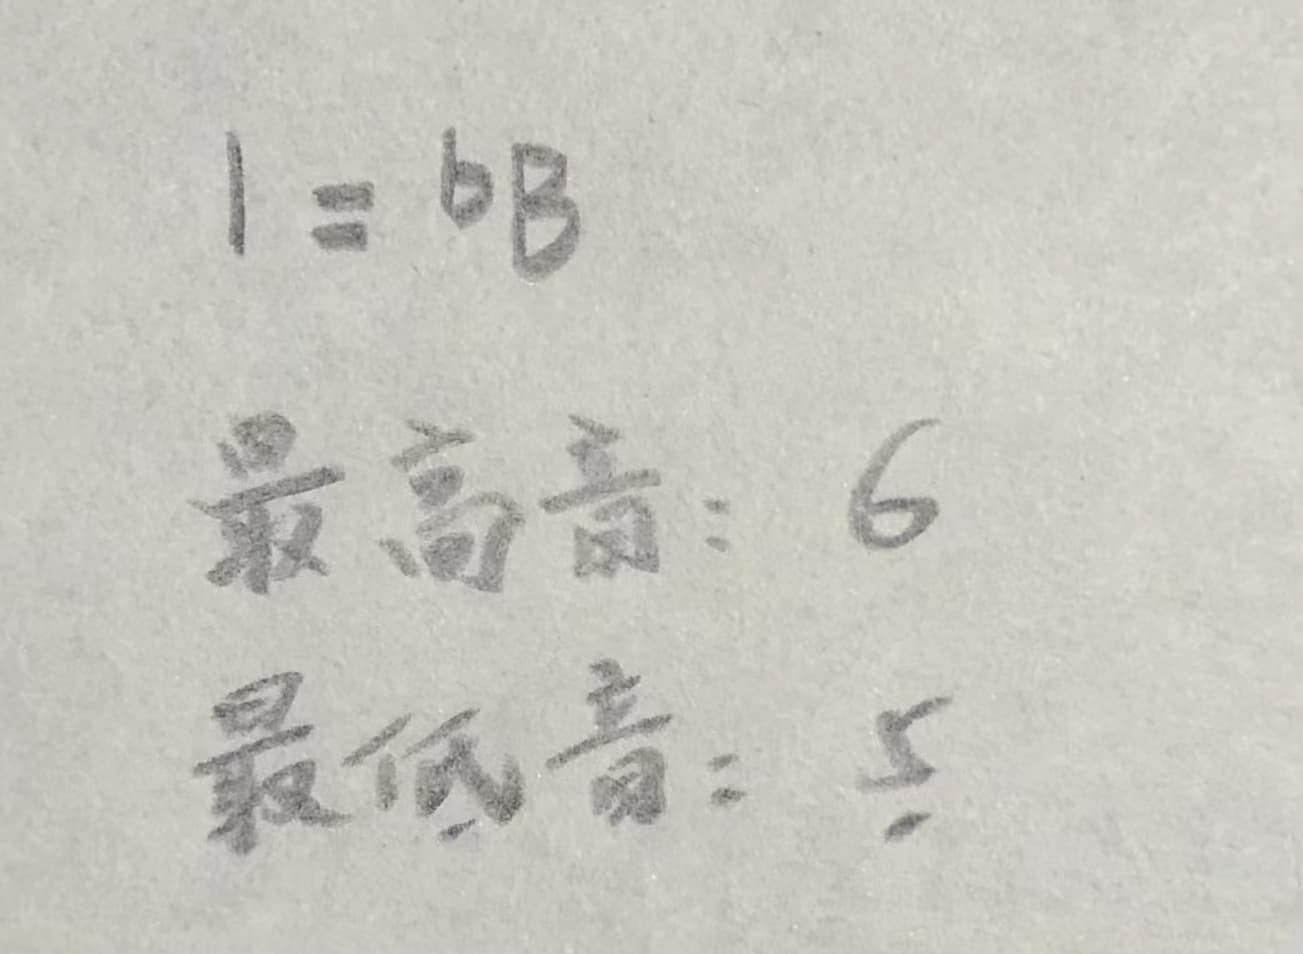 1=ᵇB
最高音：6
最低音：5̣